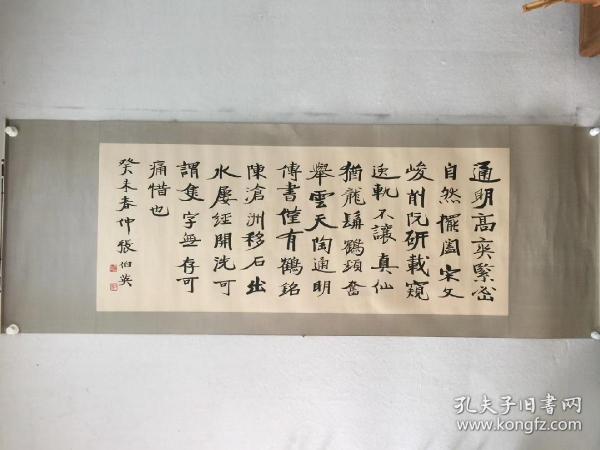 通明高爽緊密
自然擺闔宋文
峻削阮研載窺
逸軌不讓真仙
猶龍驤鶴頸奮
舉雲天陶通明
傳書僅有鶴銘
陳滄洲移石出
水屢經開洗可
謂隻字無存可
痛惜也
癸未春仲張伯英
孔夫子旧书网
www.kongfz.com